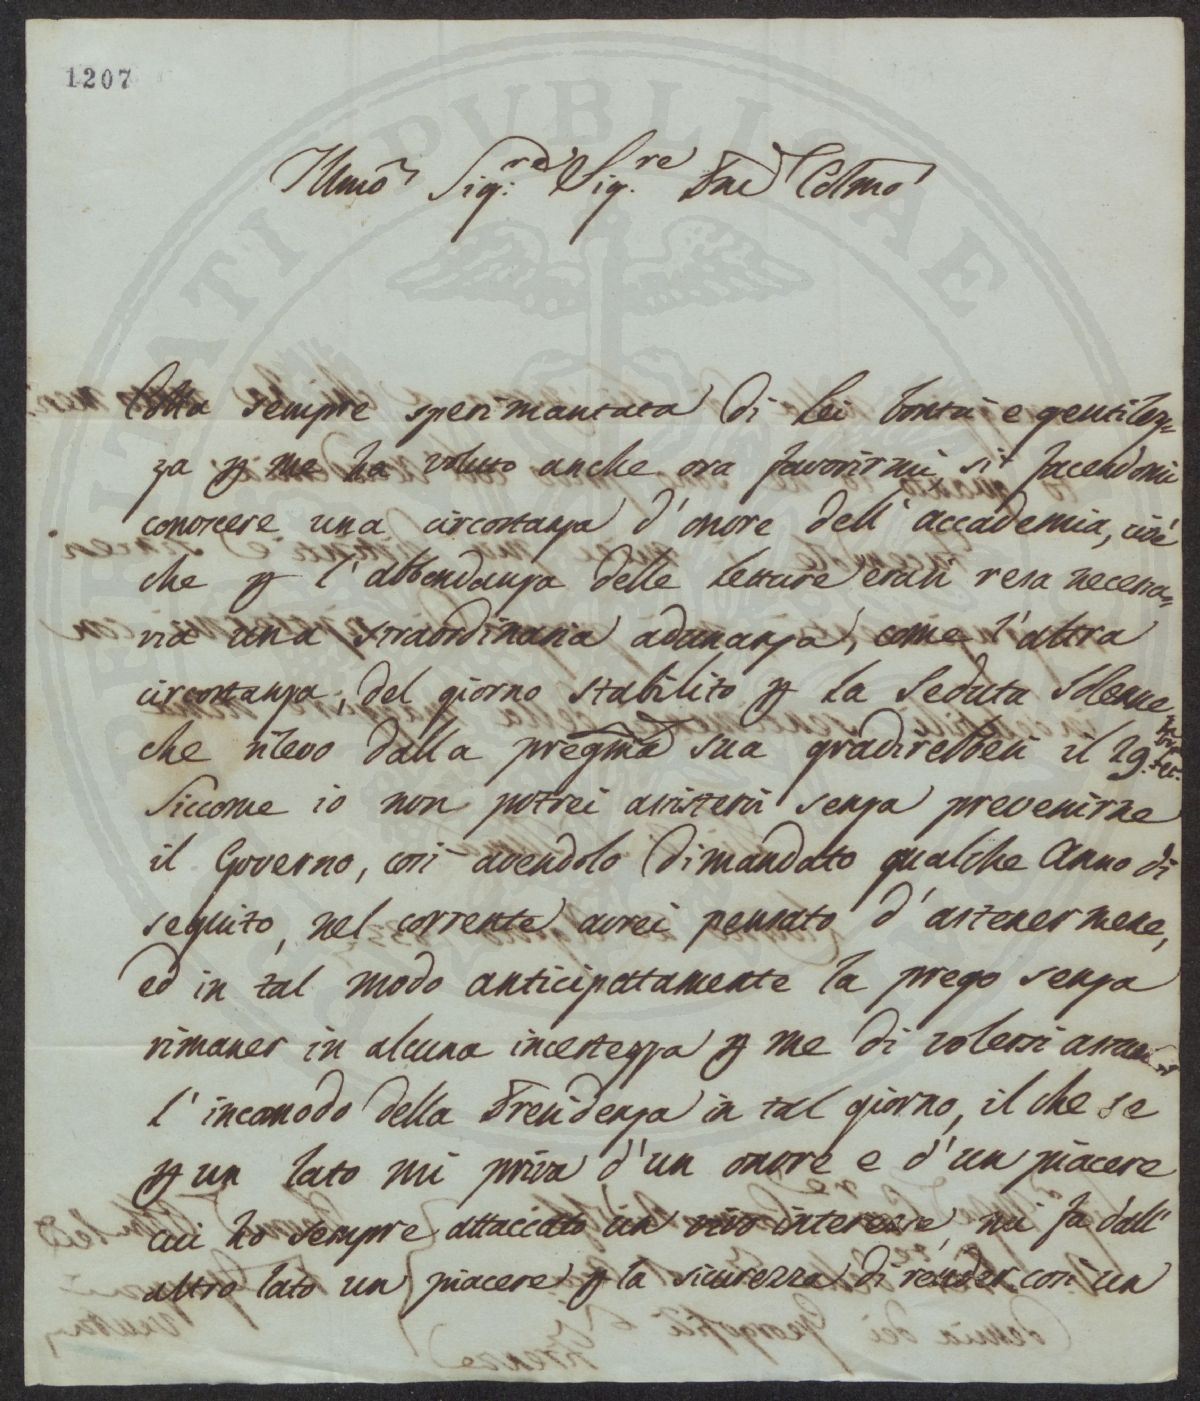 1207
Illmo Sig:re Sig.re Pne Colmo
Colla sempre sperimantata di Lei bontà e gentilez=
za p me ha voluto anche ora favorirmi sì facendomi
conoscere una circostanza d'onore dell'accademia, cioè
che p l'abbondanza delle letture erasi resa necessa=
ria una straordinaria adunanza, come l'altra
circostanza, del giorno stabilito p la Seduta Solenne
che rilevo dalla pregma sua gradirebbesi il 29
Siccome io non potrei assistervi senza prevenirne
il Governo, così avendolo dimandato qualche Anno di
seguito, nel corrente avrei pensato d'astenermene,
ed in tal modo anticipattamente la prego senza
rimaner in alcuna incertezza p me di volersi
l'incomodo della Presidenza in tal giorno, il che se
p un lato mi priva d'un onore e d'un piacere
cui ho sempre attaccato un vivo interesse, mi fa dall'
altro lato un piacere p la sicurezza di render così un